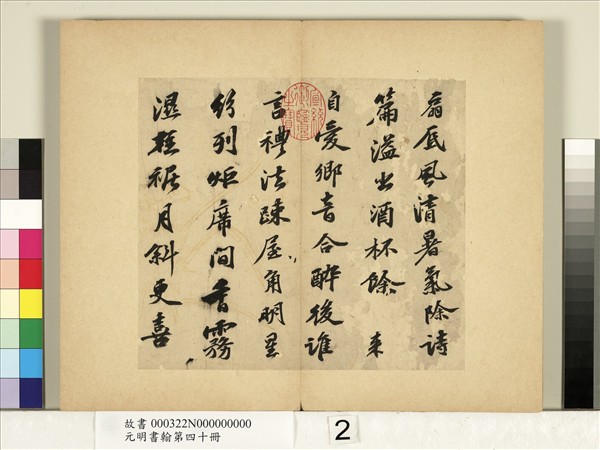 扇底風清暑氣除詩
篇溢出酒杯餘 来
自愛鄉音合醉後誰
言禮法疎屋角明星
紛列炬席間香霧
濕輕裾月斜更喜
宣統御覽之寶
故書 000322N000000000
元明書翰第四十冊
2